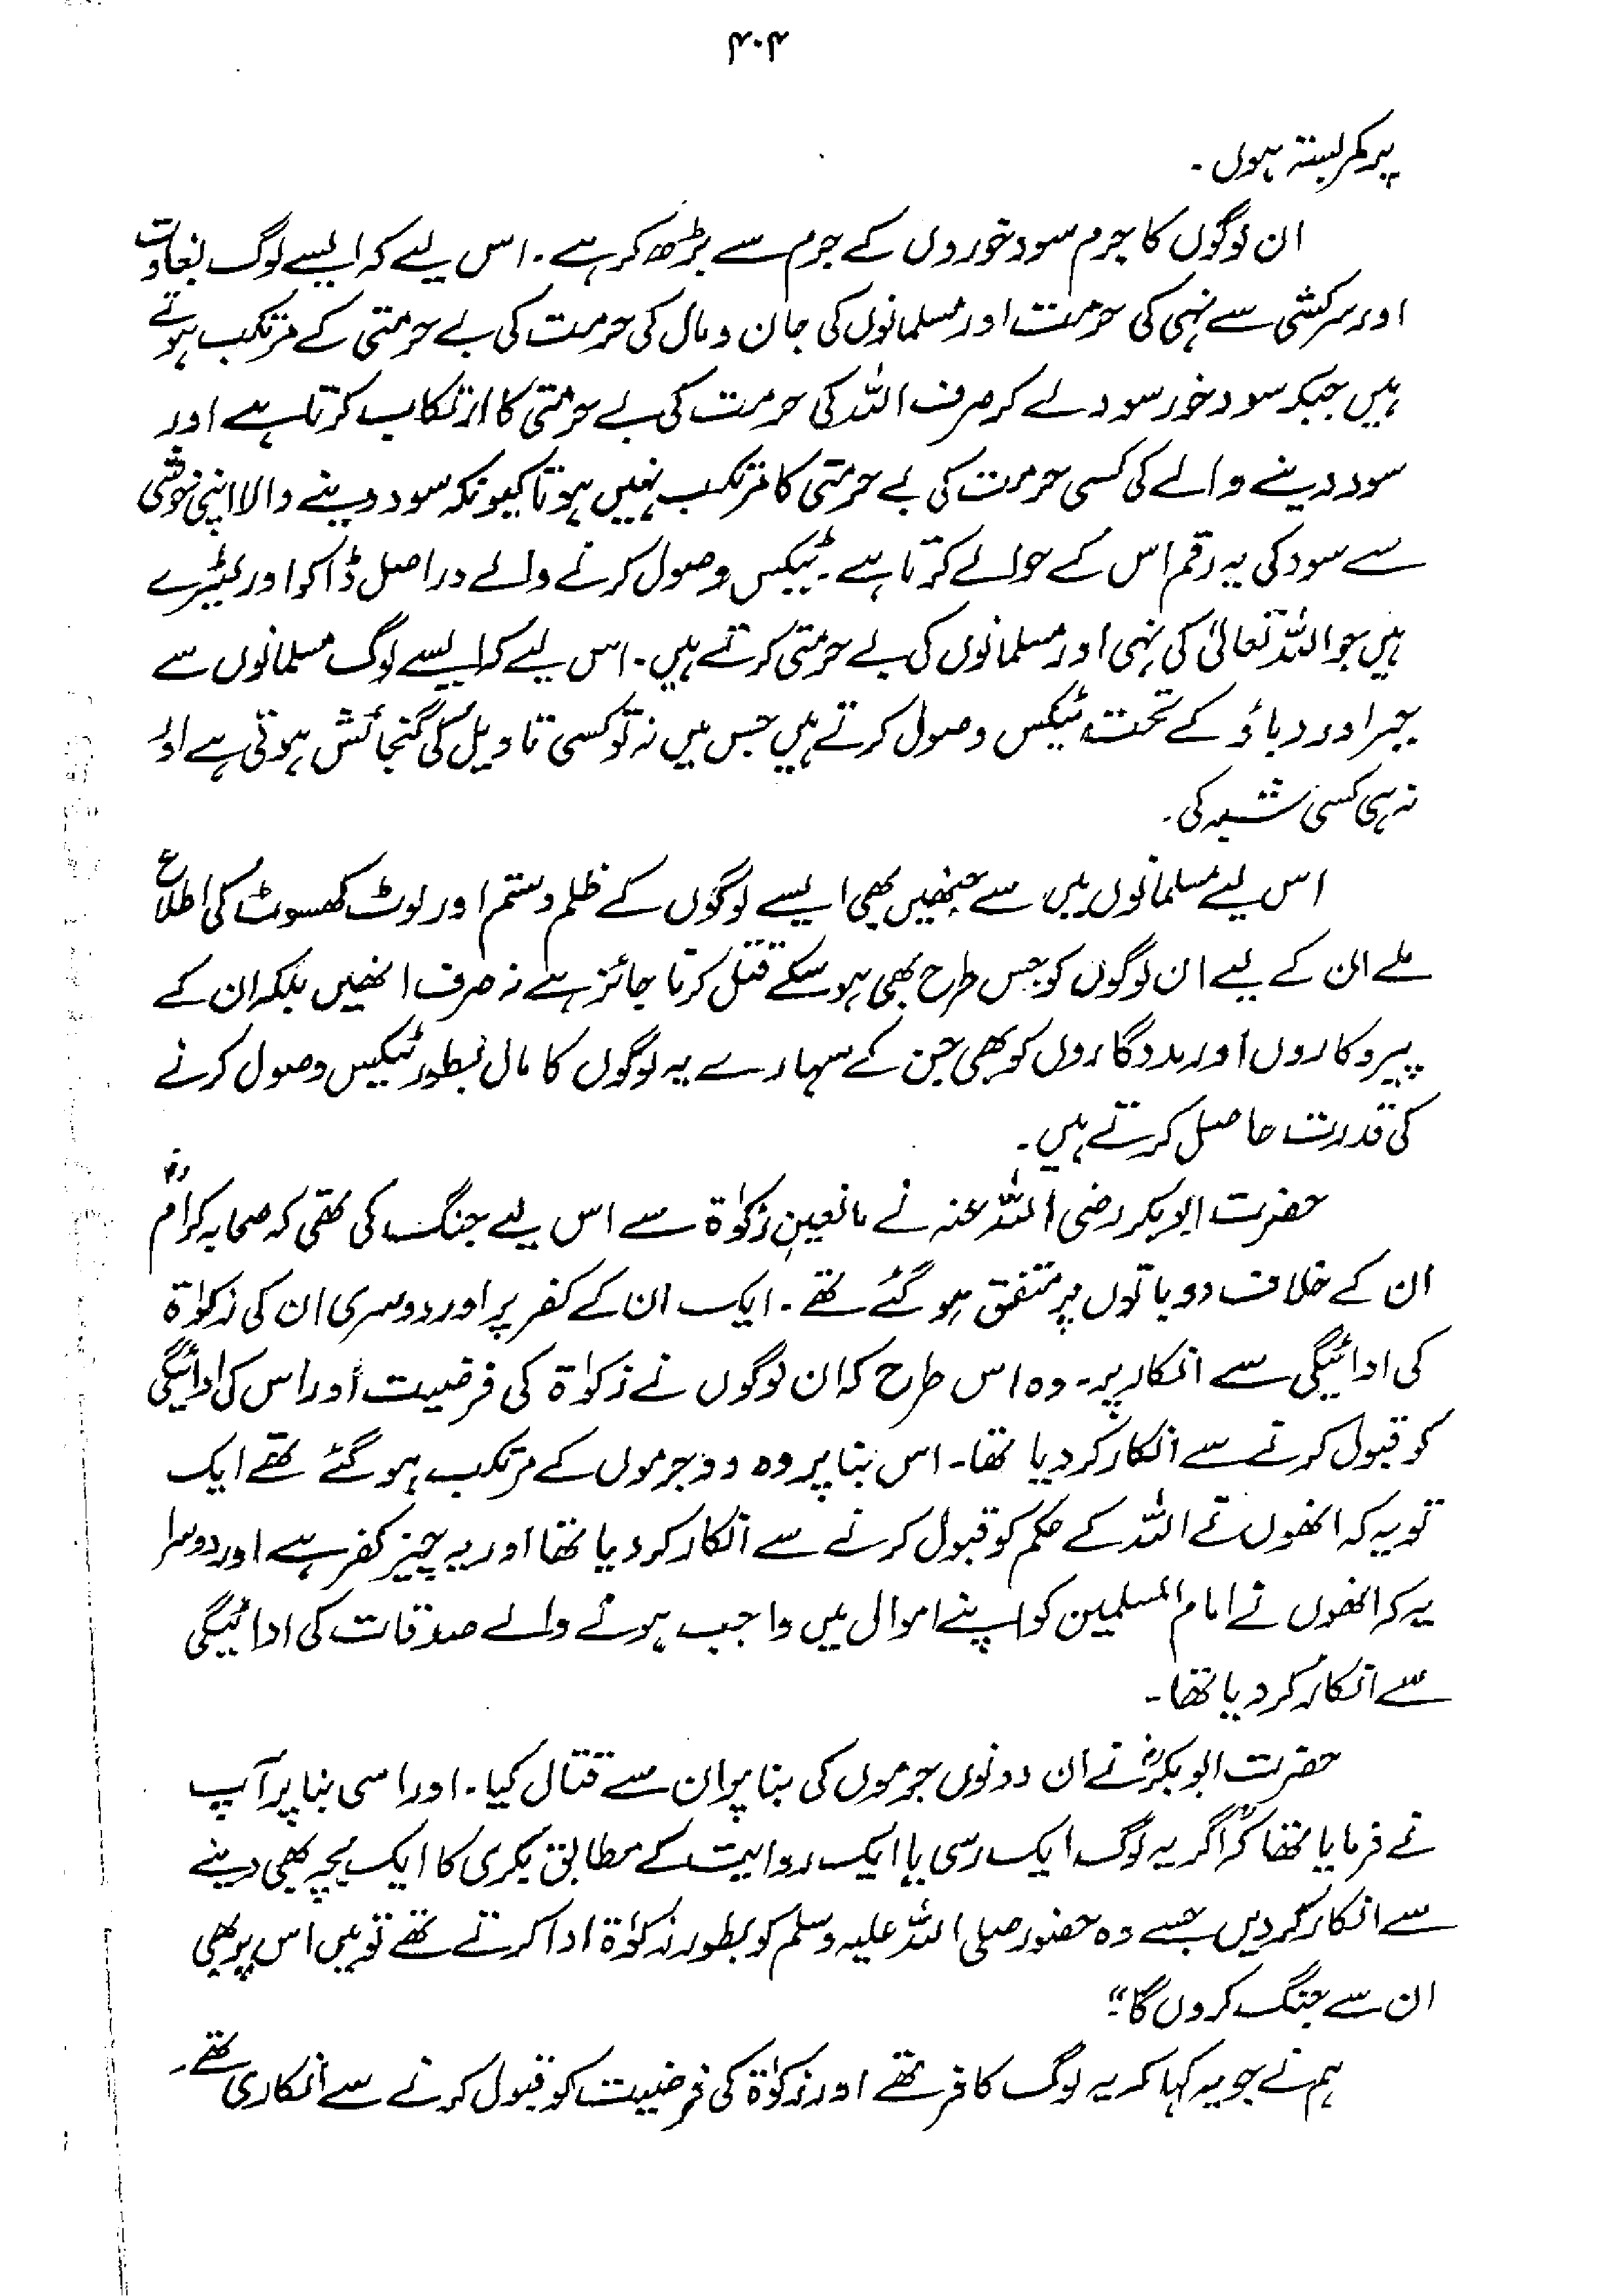 ۴۰۴
پر کمربستہ ہوں۔
ان لوگوں کا جرم سود خوروں کے جرم سے بڑھ کر ہے۔ اس لیے کہ ایسے لوگ بغاوت
اور سرکشی سے نہی کی حرمت اور مسلمانوں کی جان و مال کی حرمت کی بے حرمتی کے مرتکب ہوتے
ہیں جبکہ سود خور سود لے کر صرف اللہ کی حرمت کی بے حرمتی کا ارتکاب کرتا ہے اور
سود دینے والے کی کسی حرمت کی بے حرمتی کا مرتکب نہیں ہوتا کیونکہ سود دینے والا اپنی خوشی
سے سود کی یہ رقم اس کے حوالے کرتا ہے۔ ٹیکس وصول کرنے والے دراصل ڈاکو اور لٹیرے
ہیں جو اللہ تعالیٰ کی نہی اور مسلمانوں کی بے حرمتی کرتے ہیں۔ اس لیے کہ ایسے لوگ مسلمانوں سے
جبر اور دباؤ کے تحت ٹیکس وصول کرتے ہیں جس میں نہ تو کسی تاویل کی گنجائش ہوتی ہے اور
نہ ہی کسی شبہ کی۔
اس لیے مسلمانوں میں سے جنھیں بھی ایسے لوگوں کے ظلم و ستم اور لوٹ کھسوٹ کی اطلاع
ملے ان کے لیے ان لوگوں کو جس طرح بھی ہو سکے قتل کرنا جائز ہے نہ صرف انھیں بلکہ ان کے
پیروکاروں اور مددگاروں کو بھی جن کے سہارے یہ لوگوں کا مال بطور ٹیکس وصول کرنے
کی قدرت حاصل کرتے ہیں۔
حضرت ابوبکر رضی اللہ عنہ نے مانعینِ زکوٰۃ سے اس لیے جنگ کی تھی کہ صحابہ کرامؓ
ان کے خلاف دو باتوں پر متفق ہو گئے تھے۔ ایک ان کے کفر پر اور دوسری ان کی زکوٰۃ
کی ادائیگی سے انکار پر۔ وہ اس طرح کہ ان لوگوں نے زکوٰۃ کی فرضیت اور اس کی ادائیگی
کو قبول کرنے سے انکار کر دیا تھا۔ اس بنا پر وہ دو جرموں کے مرتکب ہو گئے تھے ایک
تو یہ کہ انھوں نے اللہ کے حکم کو قبول کرنے سے انکار کر دیا تھا اور یہ چیز کفر ہے اور دوسرا
یہ کہ انھوں نے امام المسلمین کو اپنے اموال میں واجب ہونے والے صدقات کی ادائیگی
سے انکار کر دیا تھا۔
حضرت ابوبکرؓ نے ان دونوں جرموں کی بنا پر ان سے قتال کیا۔ اور اسی بنا پر آپ
نے فرمایا تھا کہ "اگر یہ لوگ ایک رسی یا ایک روایت کے مطابق بکری کا ایک بچہ بھی دینے
سے انکار کر دیں جسے وہ حضور صلی اللہ علیہ وسلم کو بطور زکوٰۃ ادا کرتے تھے تو میں اس پر بھی
ان سے جنگ کروں گا۔"
ہم نے جو یہ کہا کہ یہ لوگ کافر تھے اور زکوٰۃ کی فرضیت کو قبول کرنے سے انکاری تھے۔